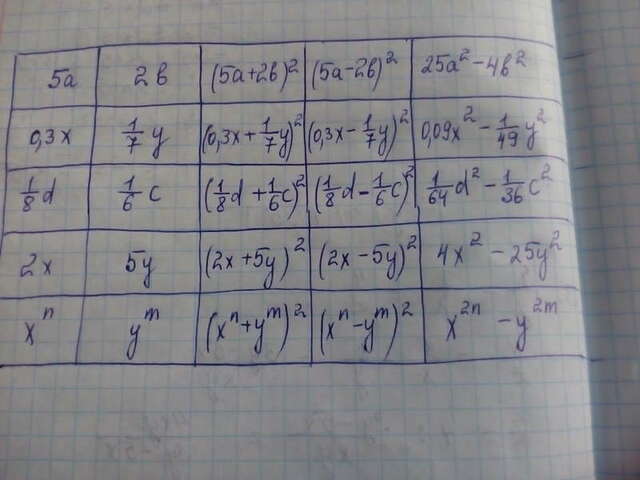 5a 2b (5a+2b)² (5a-2b)² 25a² - 4b²
0,3x 1/7 y (0,3x + 1/7 y)² (0,3x - 1/7 y)² 0,09x² - 1/49 y²
1/8 d 1/6 c (1/8 d + 1/6 c)² (1/8 d - 1/6 c)² 1/64 d² - 1/36 c²
2x 5y (2x + 5y)² (2x - 5y)² 4x² - 25y²
xⁿ yᵐ (xⁿ + yᵐ)² (xⁿ - yᵐ)² x²ⁿ - y²ᵐ